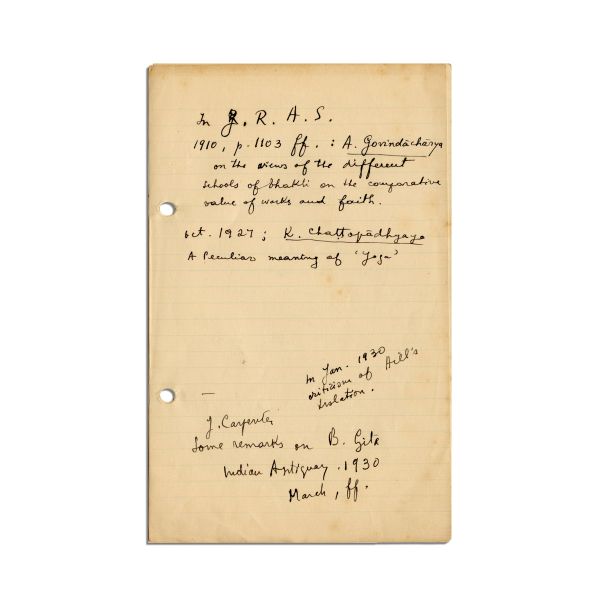 In J. R. A. S.
1910, p. 1103 ff. : A. Govindāchārya
on the views of the different
schools of bhakti on the comparative
value of works and faith.
Oct. 1927 ; K. Chattopādhyaya
A Peculiar meaning of 'Yoga'
In Jan. 1930
criticism of Hill's
trslation.
J. Carpenter
Some remarks on B. Gita
Indian Antiquary. 1930
March, ff.